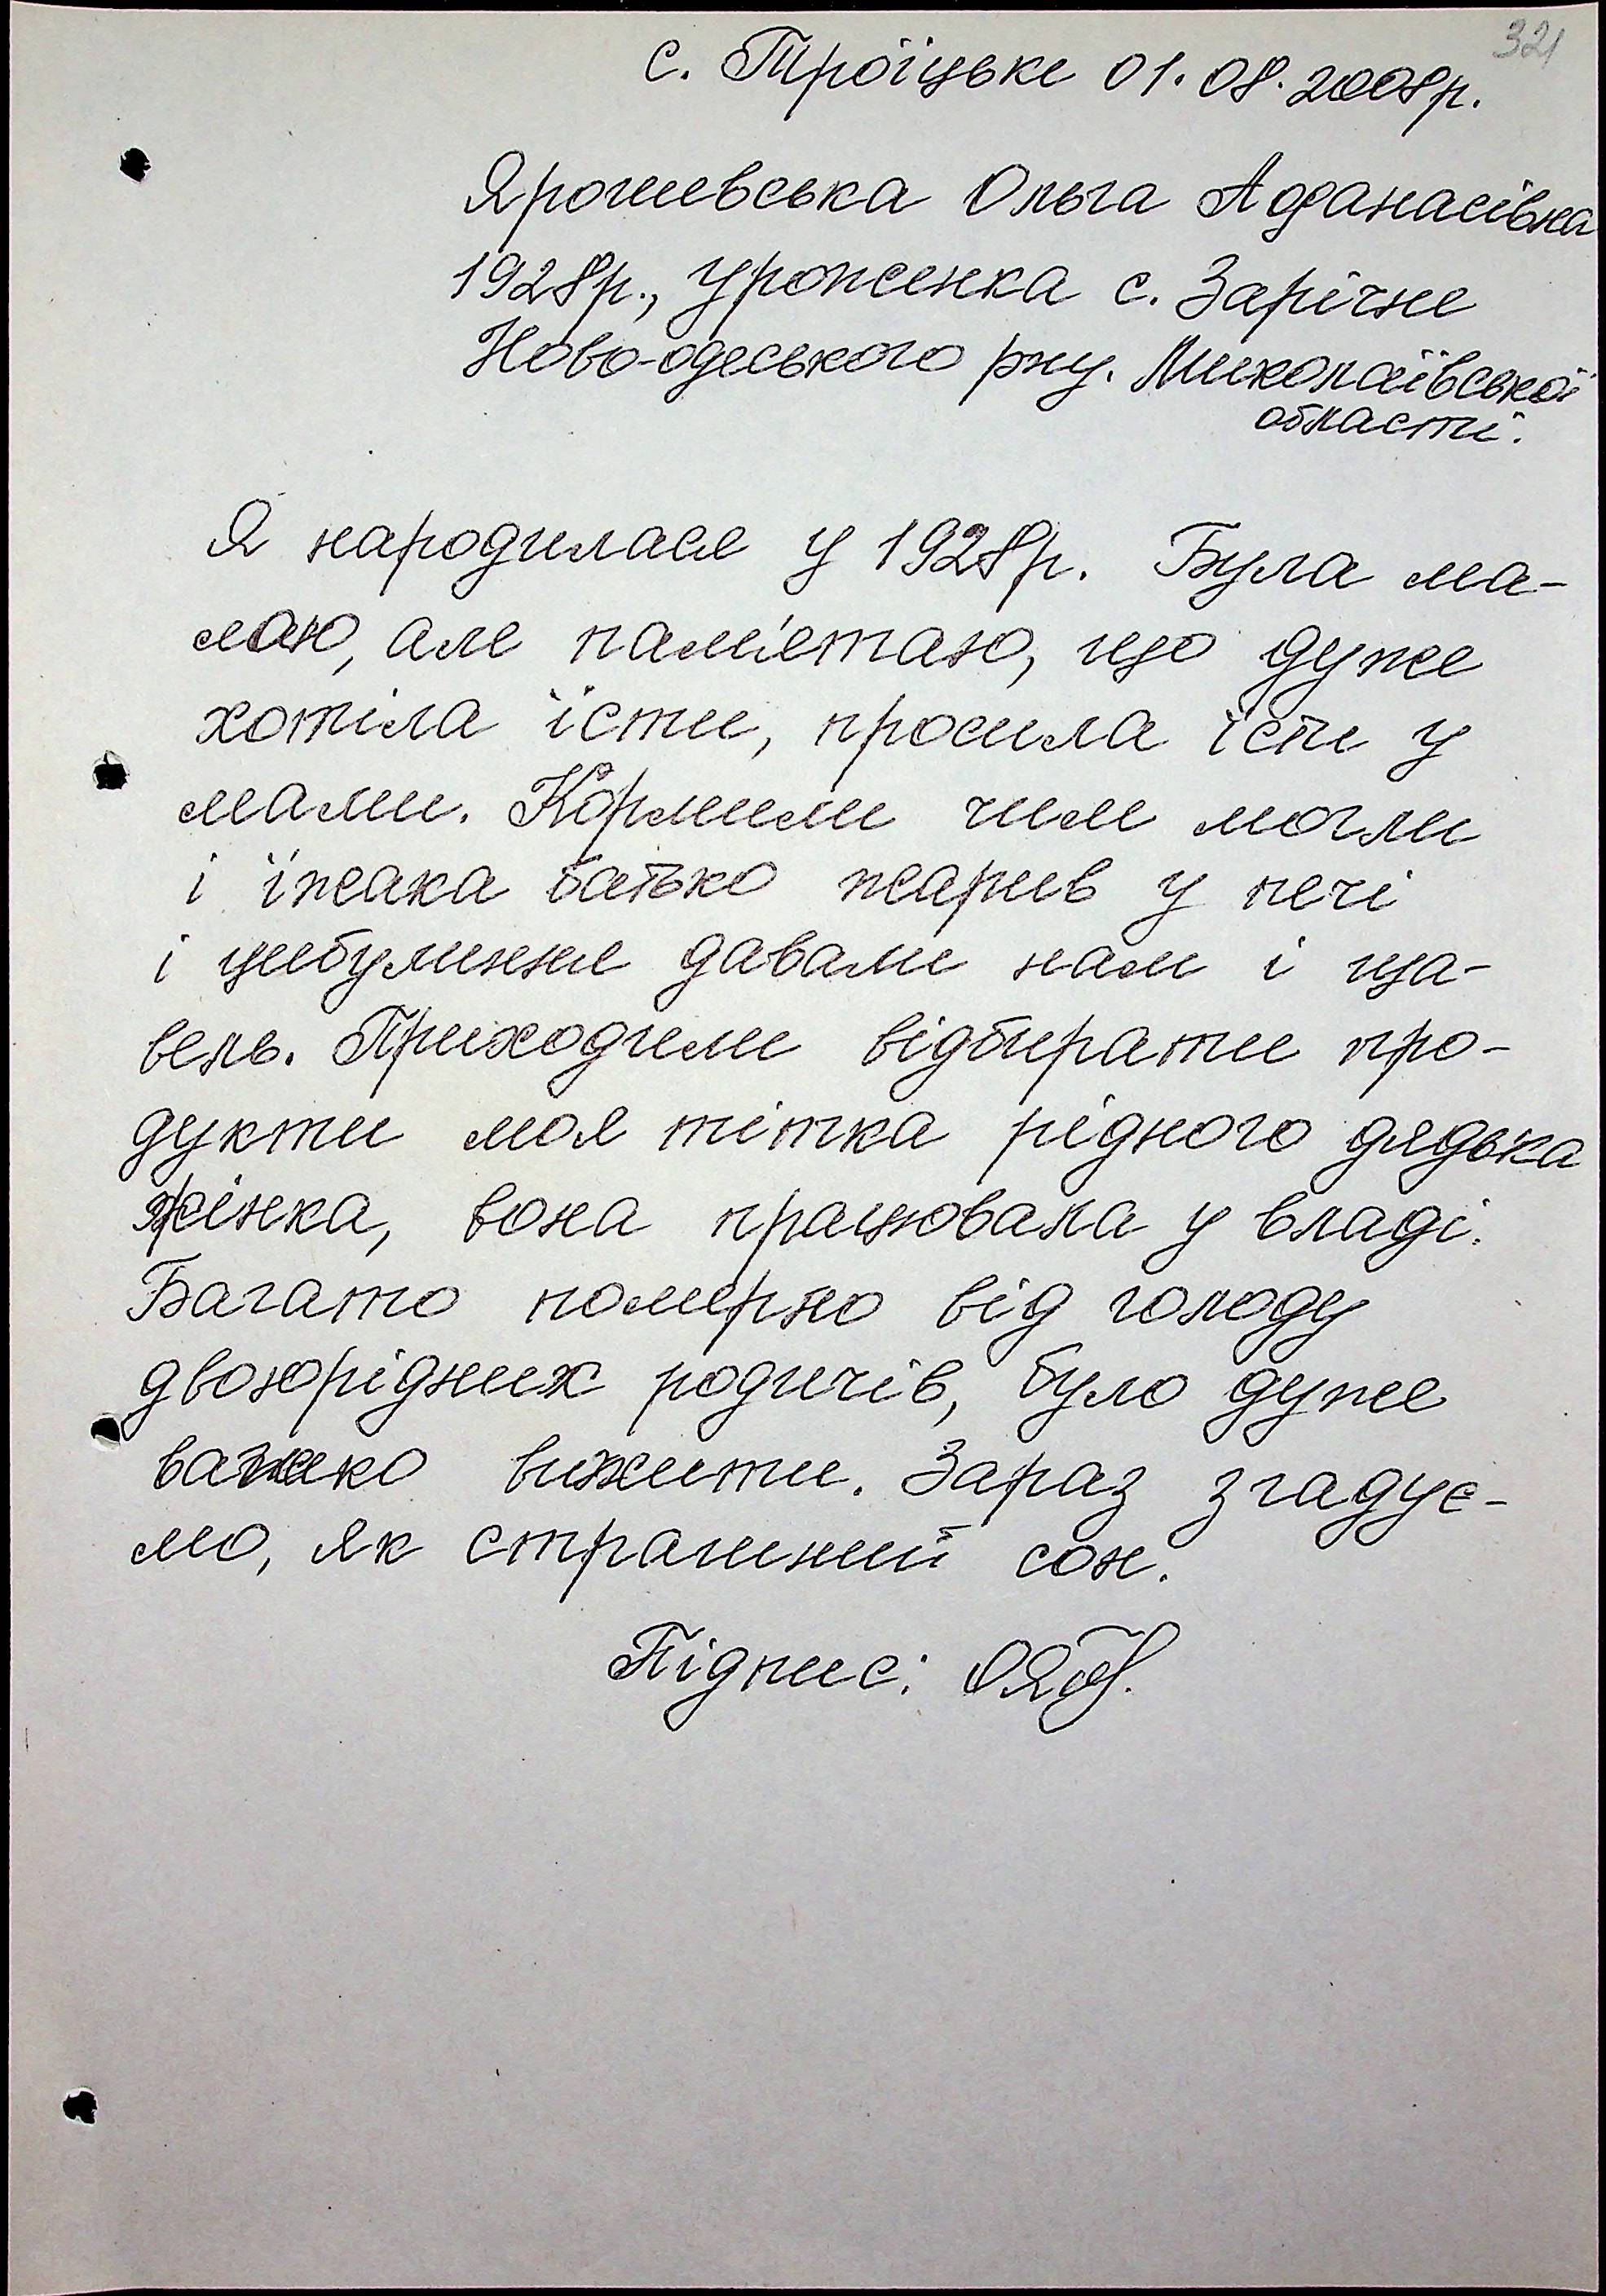 321
с. Троїцьке 01.08.2008р.
Ярошевська Ольга Афанасівна
1928р., уроженка с. Зарічне
Ново-одеського рну. Миколаївської
області.
Я народилася у 1928р. Була ма-
лою, але пам'ятаю, що дуже
хотіла їсти, просила їсти у
мами. Кормили чим могли
і їжака батько жарив у печі
і цибулиння давали нам і ща-
вель. Приходили відбирати про-
дукти моя тітка рідного дядька
жінка, вона працювала у владі.
Багато померло від голоду
двоюрідних родичів, було дуже
важко вижити. Зараз згадує-
мо, як страшний сон.
Підпис: